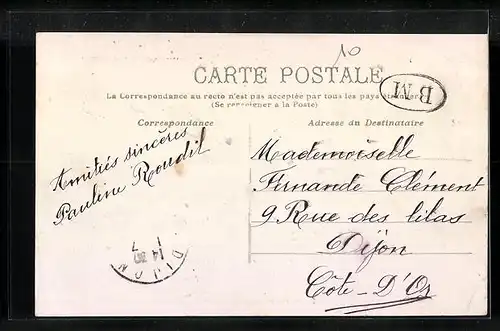 10
CARTE POSTALE
La Correspondance au recto n'est pas acceptée par tous les pays étrangers
(Se renseigner à la Poste)
BM
Correspondance
Adresse du Destinataire
Amitiés sincères
Pauline Roudil
Mademoiselle
Fernande Clément
9 Rue des lilas
Dijon
Côte-D'Or
DIJON
14
7